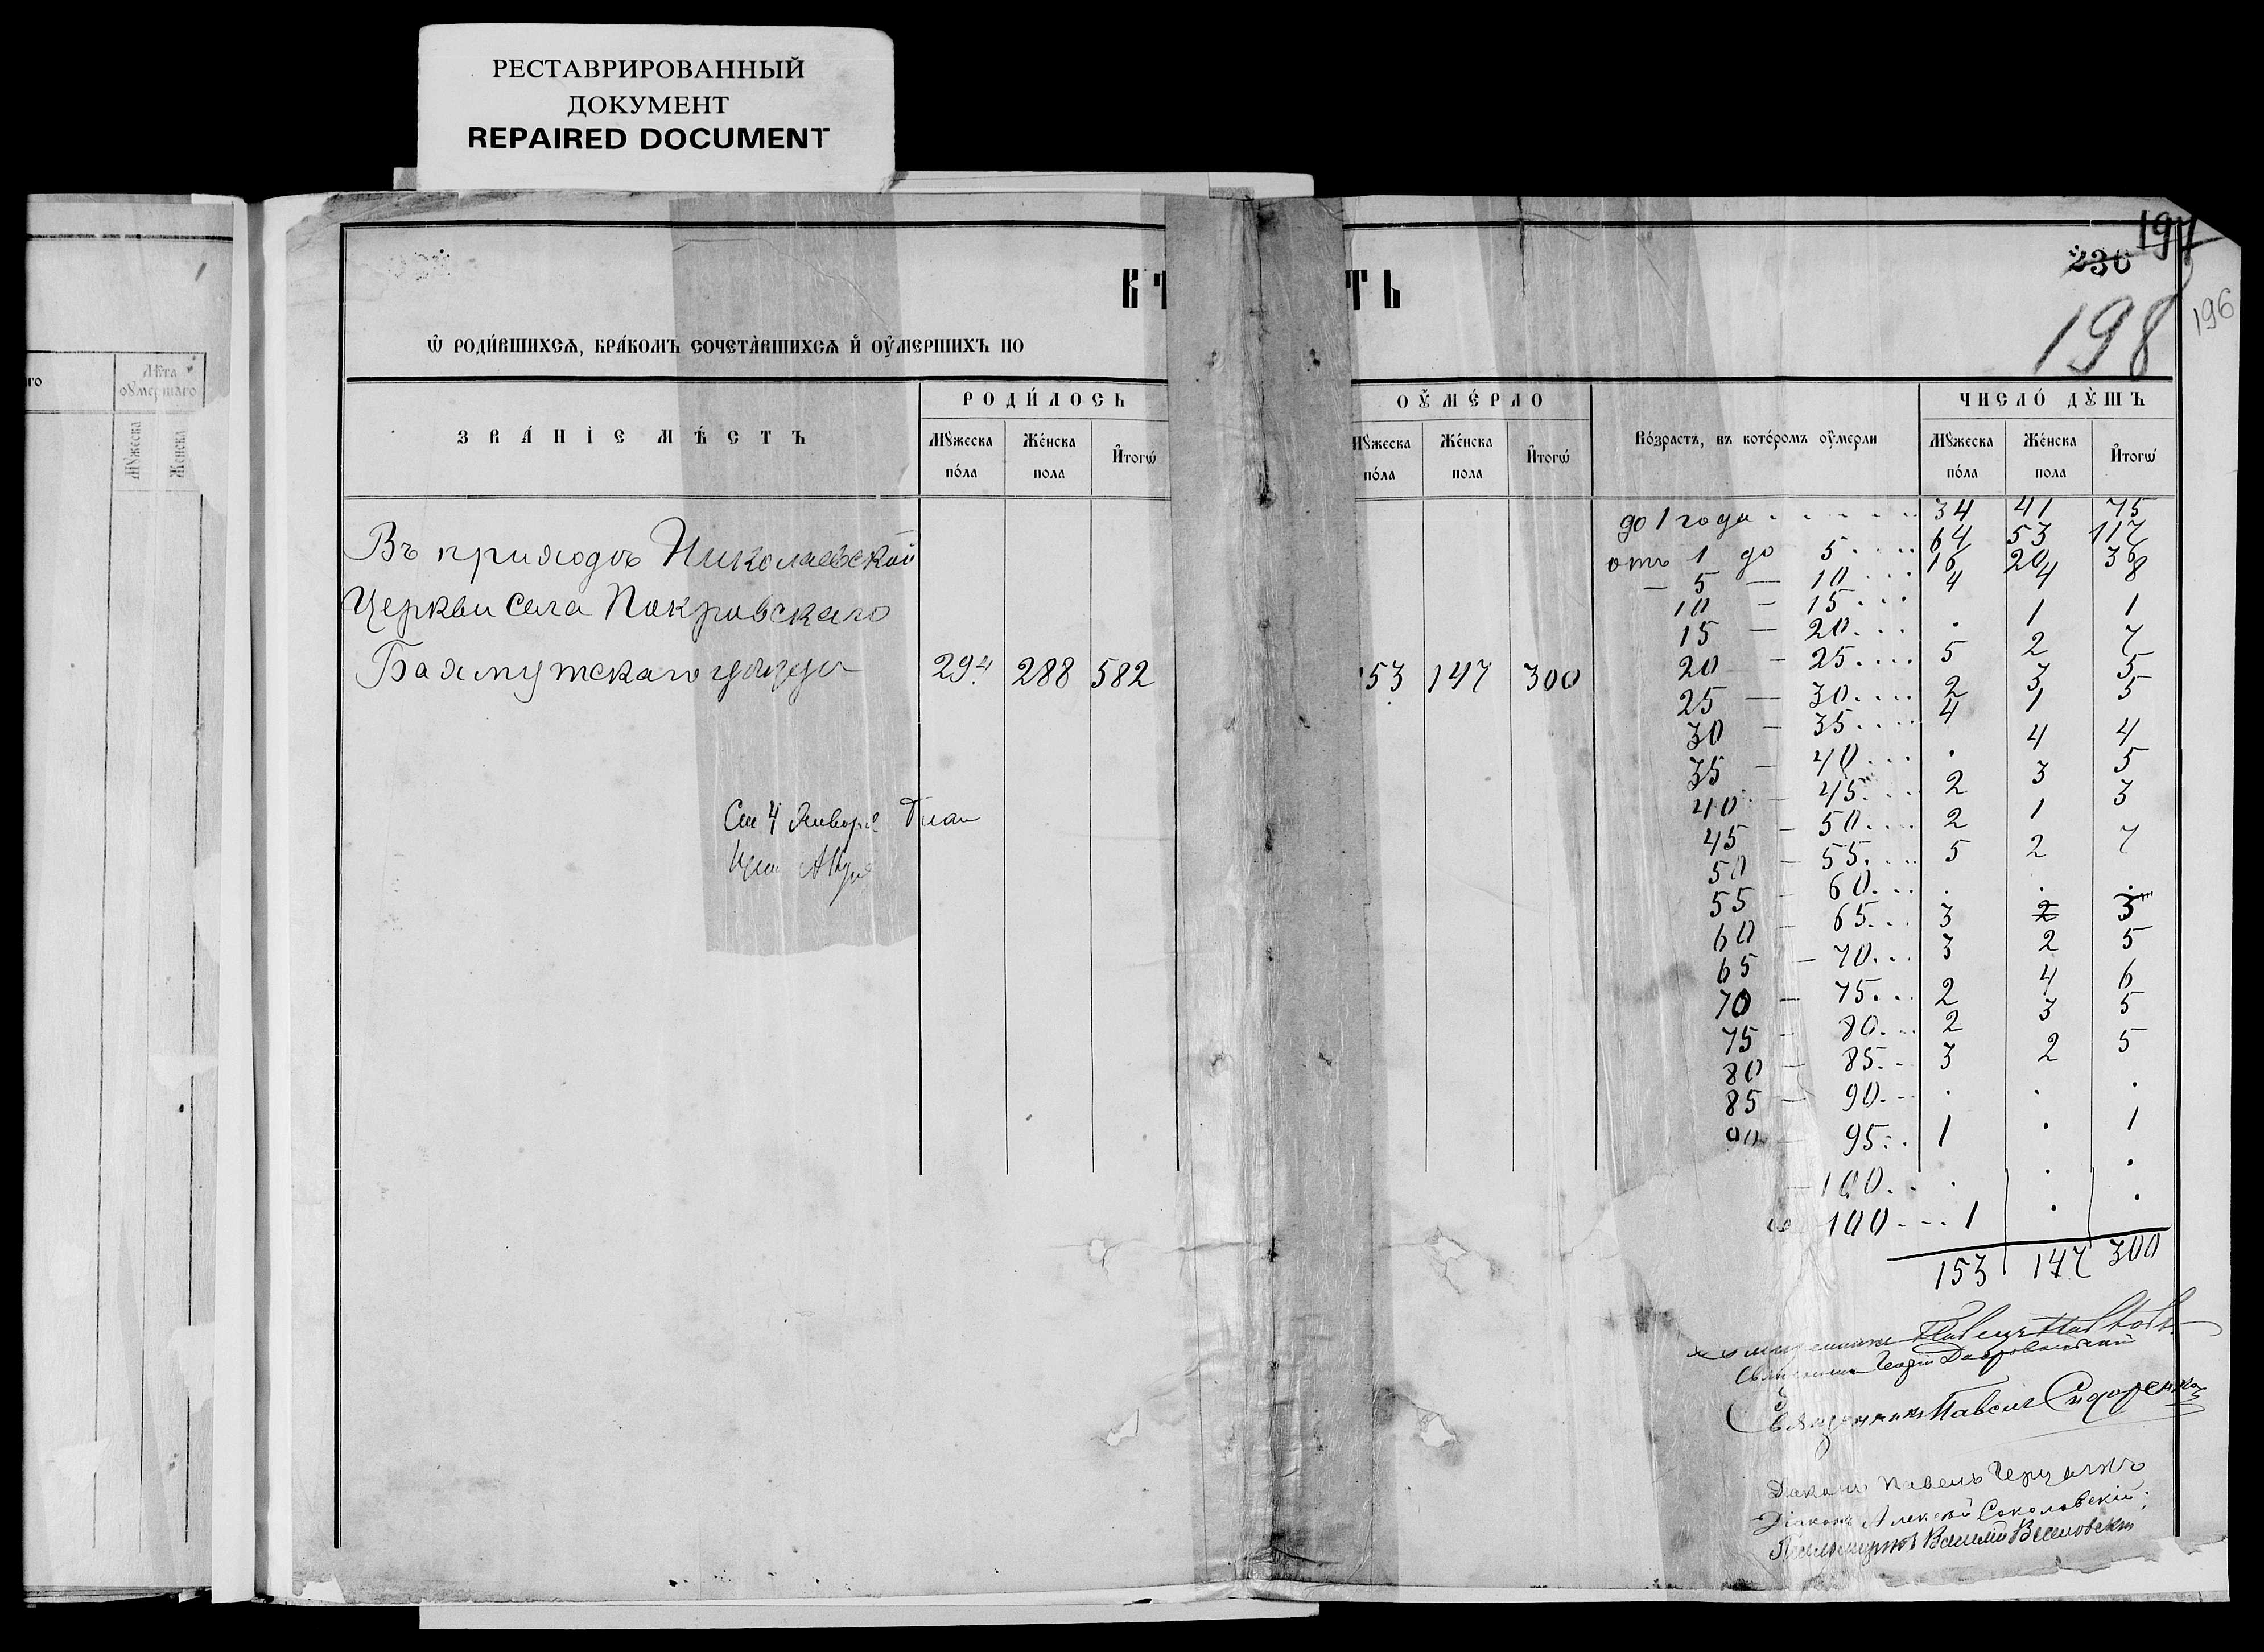 РЕСТАВРИРОВАННЫЙ
ДОКУМЕНТ
REPAIRED DOCUMENT
Лѣта
оумершаго
Мꙋжеска
Женска
197
236
198
196
Ѡ РОДИ́ВШИХСѦ, БРА́КОМЪ СОЧЕТА́ВШИХСѦ И҆ ОУ҆МЕРШИХЪ ПО
ЗВА́НІЕ МѢ́СТЪ
РОДИ́ЛОСЬ
Мꙋжеска по́ла
Же́нска пола
И҆тогѡ̀
ОУ҆МЕ́РЛО
Мꙋжеска по́ла
Же́нска пола
И҆тогѡ̀
Во́зрастъ, въ кото́ромъ оу҆мерли
ЧИСЛО́ ДꙊ́ШЪ
Мꙋжеска по́ла
Же́нска пола
И҆тогѡ̀
Въ приходѣ Николаевской
Церкви села Покровскаго
Бахмутскаго уѣзда 294 288 582 153 147 300
до 1 года 34 41 75
отъ 1 до 5 64 53 117
— 5 — 10 16 20 36
10 — 15 4 4 8
15 — 20 . 1 1
20 — 25 5 2 7
25 — 30 2 3 5
30 — 35 4 1 5
35 — 40 . 4 4
40 — 45 2 3 5
45 — 50 2 1 3
50 — 55 5 2 7
55 — 60 . . .
60 — 65 3 2 3
65 — 70 3 2 5
70 — 75 2 4 6
75 — 80 2 3 5
80 — 85 3 2 5
85 — 90 . . .
90 — 95 1 . 1
— 100 . . .
100 1 . .
153 147 300
4 Января
Священникъ Георгій Добровольскій
Священникъ Павелъ Сидоренко
Діаконъ Павелъ
Діаконъ Алексѣй Соколовскій;
Псаломщикъ Василій